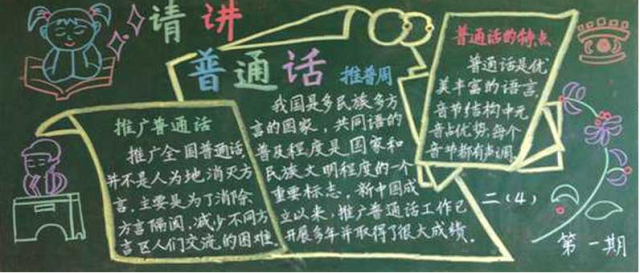 请讲
普通话
推普周
推广普通话
推广全国普通话,
并不是人为地消灭方
言,主要是为了消除
方言隔阂,减少不同方
言区人们交流的困难
我国是多民族多方
言的国家,共同语的
普及程度是国家和
民族文明程度的一个
重要标志,新中国成
立以来,推广普通话工作已
开展多年并取得了很大成绩。
普通话的特点
普通话是优
美丰富的语言
音节结构中元
音占优势,每个
音节都有声调
二(4)
第一期